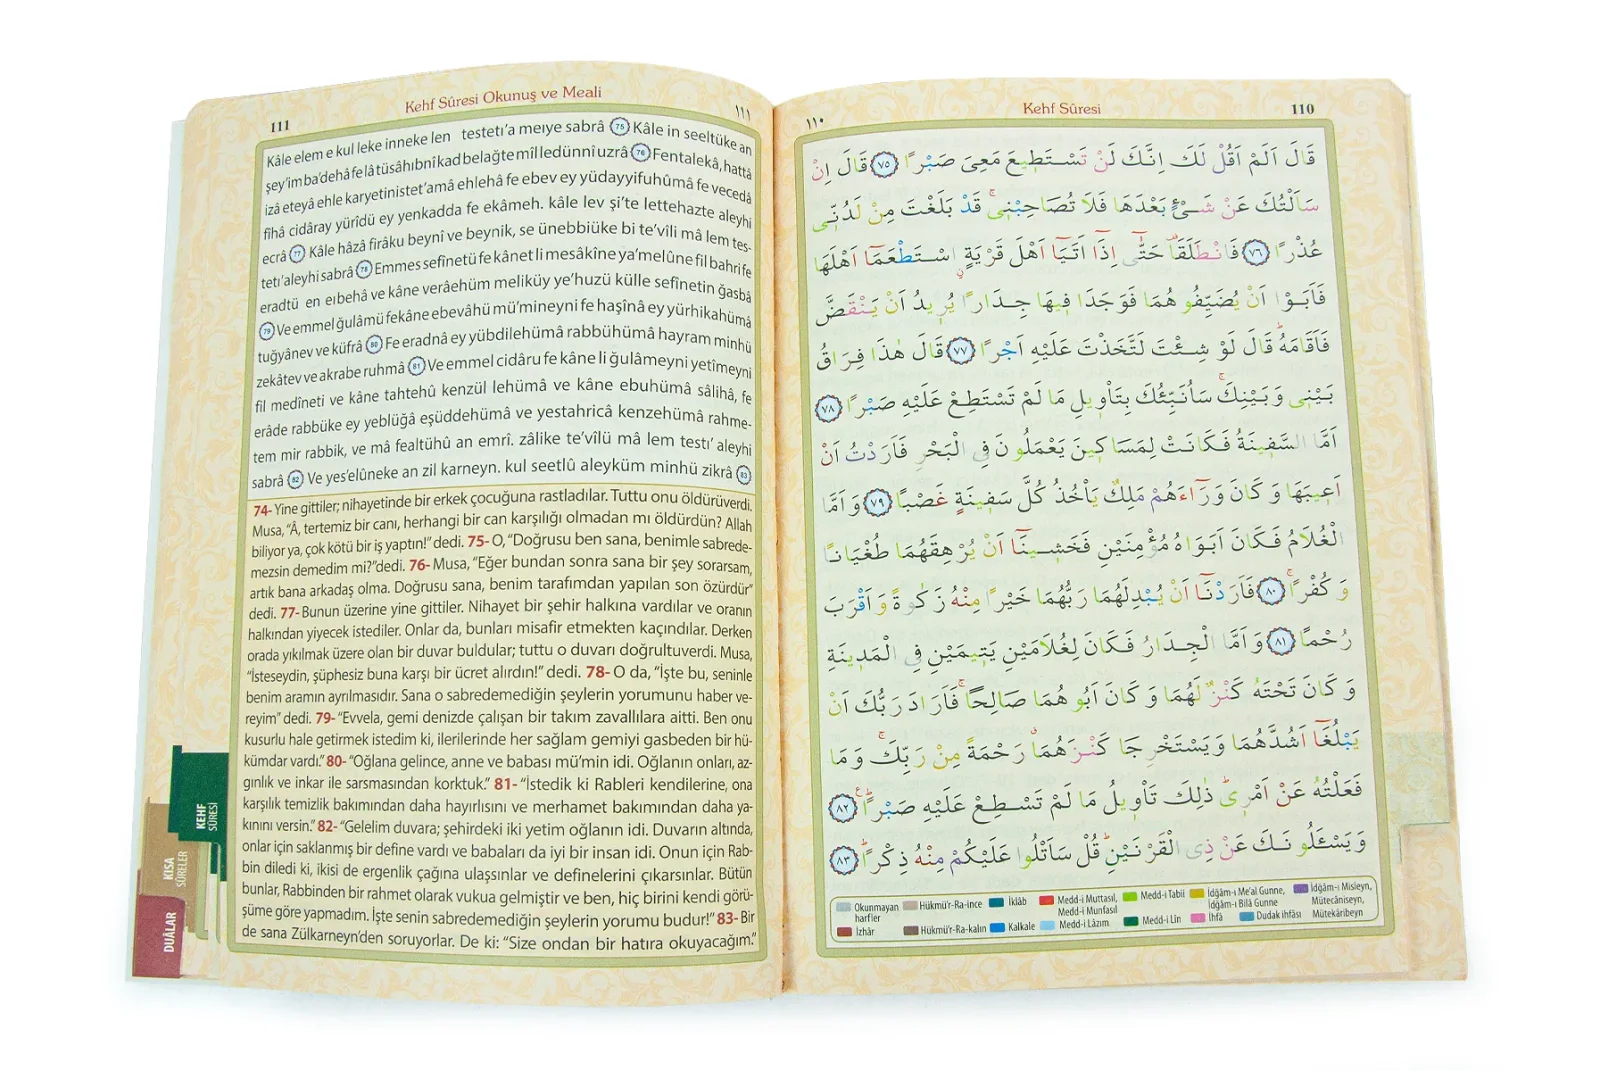 Kehf Sûresi Okunuş ve Meali
111
١١١
Kâle elem e kul leke inneke len testetı’a meıye sabrâ 75 Kâle in seeltüke an
şey’im ba’dehâ fe lâ tüsâhıbnî kad belağte mil ledünnî uzrâ 76 Fentalekâ, hattâ
izâ eteyâ ehle karyetinistet’amâ ehlehâ fe ebev ey yüdayyifuhûmâ fe vecedâ
fîhâ cidâray yürîdü ey yenkadda fe ekâmeh. kâle lev şi’te lettehazte aleyhi
ecrâ 77 Kâle hâzâ firâku beynî ve beynik, se ünebbiüke bi te’vîli mâ lem tes-
tetı’aleyhi sabrâ 78 Emmes sefînetü fe kânet li mesâkîne ya’melûne fil bahri fe
eradtü en eıbehâ ve kâne verâehüm meliküy ye’huzü külle sefînetin ğasbâ
79 Ve emmel ğulâmü fekâne ebevâhü mü’mineyni fe haşînâ ey yürhikahümâ
tuğyânev ve küfrâ 80 Fe eradnâ ey yübdilehümâ rabbühümâ hayram minhü
zekâtev ve akrabe ruhmâ 81 Ve emmel cidâru fe kâne li ğulâmeyni yetîmeyni
fil medîneti ve kâne tahtehû kenzül lehümâ ve kâne ebuhümâ sâlihâ, fe
erâde rabbüke ey yeblüğâ eşüddehümâ ve yestahricâ kenzehümâ rahme-
tem mir rabbik, ve mâ fealtühû an emrî. zâlike te’vîlü mâ lem testı’ aleyhi
sabrâ 82 Ve yes’elûneke an zil karneyn. kul seetlû aleyküm minhü zikrâ 83
74- Yine gittiler; nihayetinde bir erkek çocuğuna rastladılar. Tuttu onu öldürüverdi.
Musa, “Â, tertemiz bir canı, herhangi bir can karşılığı olmadan mı öldürdün? Allah
biliyor ya, çok kötü bir iş yaptın!” dedi. 75- O, “Doğrusu ben sana, benimle sabrede-
mezsin demedim mi?”dedi. 76- Musa, “Eğer bundan sonra sana bir şey sorarsam,
artık bana arkadaş olma. Doğrusu sana, benim tarafımdan yapılan son özürdür”
dedi. 77- Bunun üzerine yine gittiler. Nihayet bir şehir halkına vardılar ve oranın
halkından yiyecek istediler. Onlar da, bunları misafir etmekten kaçındılar. Derken
orada yıkılmak üzere olan bir duvar buldular; tuttu o duvarı doğrultuverdi. Musa,
“İsteseydin, şüphesiz buna karşı bir ücret alırdın!” dedi. 78- O da, “İşte bu, seninle
benim aramın ayrılmasıdır. Sana o sabredemediğin şeylerin yorumunu haber ve-
reyim” dedi. 79- “Evvela, gemi denizde çalışan bir takım zavallılara aitti. Ben onu
kusurlu hale getirmek istedim ki, ilerilerinde her sağlam gemiyi gasbeden bir hü-
kümdar vardı.” 80- “Oğlana gelince, anne ve babası mü’min idi. Oğlanın onları, az-
gınlık ve inkar ile sarsmasından korktuk.” 81- “İstedik ki Rableri kendilerine, ona
karşılık temizlik bakımından daha hayırlısını ve merhamet bakımından daha ya-
kınını versin.” 82- “Gelelim duvara; şehirdeki iki yetim oğlanın idi. Duvarın altında,
onlar için saklanmış bir define vardı ve babaları da iyi bir insan idi. Onun için Rab-
bin diledi ki, ikisi de ergenlik çağına ulaşsınlar ve definelerini çıkarsınlar. Bütün
bunlar, Rabbinden bir rahmet olarak vukua gelmiştir ve ben, hiç birini kendi görü-
şüme göre yapmadım. İşte senin sabredemediğin şeylerin yorumu budur!” 83- Bir
de sana Zülkarneyn’den soruyorlar. De ki: “Size ondan bir hatıra okuyacağım.”
KEHF
SÛRESİ
KISA
SÛRELER
DUÂLAR
١١٠
Kehf Sûresi
110
قَالَ اَلَمْ اَقُلْ لَكَ اِنَّكَ لَنْ تَسْتَطٖيعَ مَعِىَ صَبْرًا ٧٥ قَالَ اِنْ
سَاَلْتُكَ عَنْ شَىْءٍ بَعْدَهَا فَلَا تُصَاحِبْنٖىۚ قَدْ بَلَغْتَ مِنْ لَدُنّٖى
عُذْرًا ٧٦ فَانْطَلَقَاۗ حَتّٰٓى اِذَٓا اَتَيَٓا اَهْلَ قَرْيَةٍۨ اسْتَطْعَمَٓا اَهْلَهَا
فَاَبَوْا اَنْ يُضَيِّفُوهُمَا فَوَجَدَا فٖيهَا جِدَارًا يُرٖيدُ اَنْ يَنْقَضَّ
فَاَقَامَهُؕ قَالَ لَوْ شِئْتَ لَتَّخَذْتَ عَلَيْهِ اَجْرًا ٧٧ قَالَ هٰذَا فِرَاقُ
بَيْنٖى وَبَيْنِكَۚ سَاُنَبِّئُكَ بِتَاْوٖيلِ مَا لَمْ تَسْتَطِعْ عَلَيْهِ صَبْرًا ٧٨
اَمَّا السَّفٖينَةُ فَكَانَتْ لِمَسَاكٖينَ يَعْمَلُونَ فِى الْبَحْرِ فَاَرَدْتُ اَنْ
اَعٖيبَهَا وَكَانَ وَرَٓاءَهُمْ مَلِكٌ يَاْخُذُ كُلَّ سَفٖينَةٍ غَصْبًا ٧٩ وَاَمَّا
الْغُلَامُ فَكَانَ اَبَوَاهُ مُؤْمِنَيْنِ فَخَشٖينَٓا اَنْ يُرْهِقَهُمَا طُغْيَانًا
وَكُفْرًاۚ ٨٠ فَاَرَدْنَٓا اَنْ يُبْدِلَهُمَا رَبُّهُمَا خَيْرًا مِنْهُ زَكٰوةً وَاَقْرَبَ
رُحْمًا ٨١ وَاَمَّا الْجِدَارُ فَكَانَ لِغُلَامَيْنِ يَتٖيمَيْنِ فِى الْمَدٖينَةِ
وَكَانَ تَحْتَهُ كَنْزٌ لَهُمَا وَكَانَ اَبُوهُمَا صَالِحًاۚ فَاَرَادَ رَبُّكَ اَنْ
يَبْلُغَٓا اَشُدَّهُمَا وَيَسْتَخْرِجَا كَنْزَهُمَاۗ رَحْمَةً مِنْ رَبِّكَۚ وَمَا
فَعَلْتُهُ عَنْ اَمْرٖىؕ ذٰلِكَ تَاْوٖيلُ مَا لَمْ تَسْطِعْ عَلَيْهِ صَبْرًاؕ ٨٢
وَيَسْـَٔلُونَكَ عَنْ ذِى الْقَرْنَيْنِؕ قُلْ سَاَتْلُوا عَلَيْكُمْ مِنْهُ ذِكْرًاؕ ٨٣
Okunmayan harfler
Hükmü’r-Ra-ince
İklâb
Medd-i Muttasıl, Medd-i Munfasıl
Medd-i Tabiî
İdğâm-ı Me’al Gunne, İdğâm-ı Bilâ Gunne
İdğâm-ı Misleyn, Mütecâniseyn, Mütekâribeyn
İzhâr
Hükmü’r-Ra-kalın
Kalkale
Medd-i Lâzım
Medd-i Lîn
İhfâ
Dudak ihfâsı